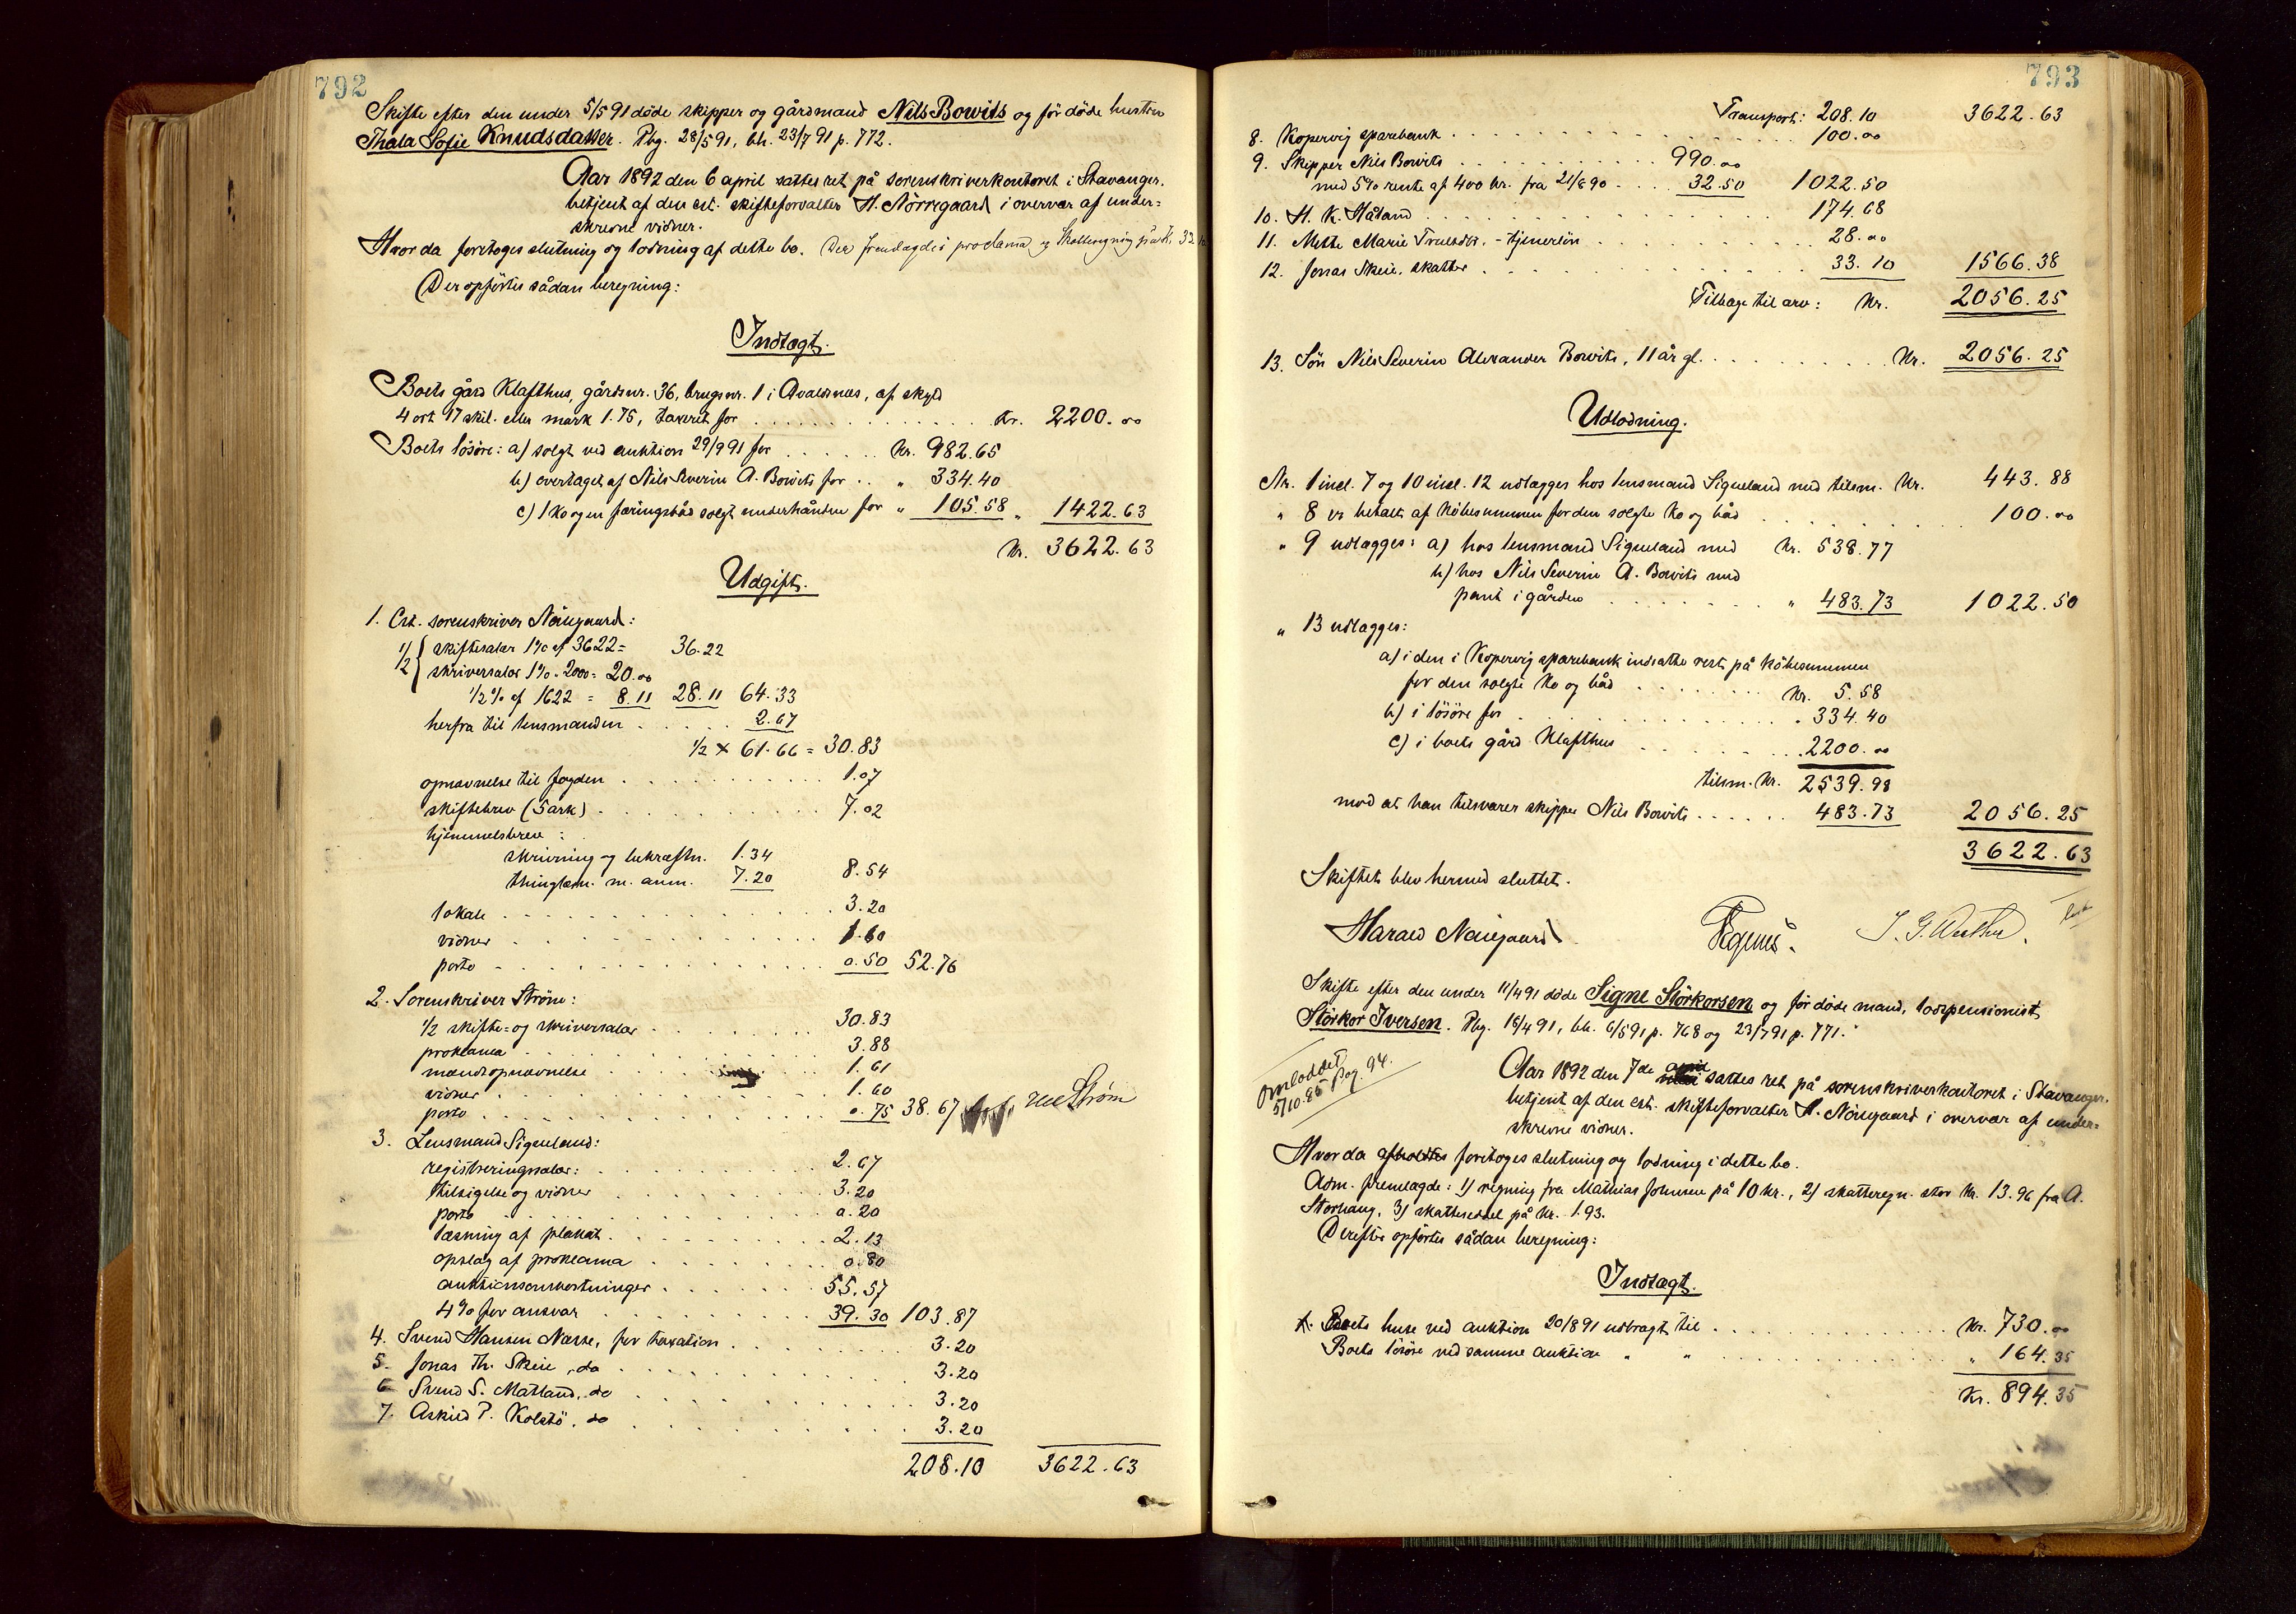 792
Skifte efter den under 5/5 91 döde skipper og gårdmand Nils Bowits og för döde hustru
Thala Sofie Knudsdatter. Pbg. 28/5 91, bh. 23/7 91 p. 772.
Aar 1892 den 6 april sattes ret på sorenskriverkontoret i Stavanger.
betjent af den cst. skifteforvalter H. Nörregaard i overvær af under=
skrevne vidner.
Hvor da foretoges slutning og lodning af dette bo. Der fremlagdes proclama og Skatteregning på k. 33.10
Der opförtes sådan beregning:
Indtægt.
Boets gård Klafthus, gårdsnr. 36, brugsnr. 1 i Avaldsnes, af skyld
4 ort 17 skil. eller mark 1.75, taxeret for . . . . Kr. 2200.00
Boets lösöre: a) solgt ved auktion 29/9 91 for . . . . Kr. 982.65
b) overtaget af Nils Severin A. Bowits for . . „ 334.40
c) 1 ko og en færingsbåd solgt underhånden for „ 105.58 „ 1422.63
Kr. 3622.63
Udgift.
1. Cst. sorenskriver Nörregaard:
1/2 { skiftesalær 1% af 3622 = 36.22
skriversalær 1% - 2000 = 20.00
1/2 % af 1622 = 8.11 28.11 64.33
herfra til lensmanden . . . . 2.67
1/2 × 61.66 = 30.83
opnævnelse til fogden . . . . 1.07
skiftebrev (5 ark) . . . . 7.02
hjemmelsbrev:
skrivning og bekræftn. 1.34
thinglæsn. m. anm. 7.20 8.54
lokale . . . . 3.20
vidner . . . . 1.60
porto . . . . 0.50 52.76
2. Sorenskriver Ström:
1/2 skifte= og skriversalær . . . . 30.83
proklama . . . . 3.88
mændsopnævnelse . . . . 1.61
vidner . . . . 1.60
porto . . . . 0.75 38.67 Ström
3. Lensmand Sigueland:
registreringssalær: . . . . 2.67
tilsigelse og vidner . . . . 3.20
porto . . . . 0.20
læsning af plakat . . . . 2.13
opslag af proklama . . . . 0.80
auktionsomkostninger . . . . 55.57
4% for ansvar . . . . 39.30 103.87
4. Svend Hansen Næsse, for taxation . . . . 3.20
5. Jonas Th. Skeie, do . . . . 3.20
6 Svend S. Matland, do . . . . 3.20
7. Askild P. Kolstö, do . . . . 3.20
208.10 3622.63
793
Transport: 208.10 3622.63
8. Kopervig sparebank . . . . 100.00
9. Skipper Nils Bowits . . . . 990.00
med 5% rente af 400 kr. fra 21/8 90 . . . . 32.50 1022.50
10. H. K. Håland . . . . 174.68
11. Mette Marie Truelsdtr. - tjenerlön . . . . 28.00
12. Jonas Skeie, skatter . . . . 33.10 1566.38
Tilbage til arv: Kr. 2056.25
13. Sön Nils Severin Alexander Bowits, 11 år gl. . . . . Kr. 2056.25
Udlodning.
Nr. 1 incl. 7 og 10 incl. 12 udlægges hos lensmand Sigueland med tilsm. Kr. 443.88
„ 8 er betalt af köbesummen for den solgte ko og båd . . . . 100.00
„ 9 udlægges: a) hos lensmand Sigueland med Kr. 538.77
b) hos Nils Severin A. Bowits med
pant i gården . . . . „ 483.73 1022.50
„ 13 udlægges:
a) i den i Kopervig sparebank indsatte rest på köbesummen
for den solgte ko og båd . . . . Kr. 5.58
b) i lösöre for . . . . 334.40
c) i boets gård Klafthus . . . . 2200.00
tilsm. Kr. 2539.98
mod at han tilsvarer skipper Nils Bowits . . . . 483.73 2056.25
3622.63
Skiftet blev hermed sluttet.
Harald Nörregaard
Skifte efter den under 11/4 91 döde Signe Störkorsen og för döde mand, lodspensionist
Störkor Iversen. Pbg. 16/4 91, bh. 6/5 91 p. 768 og 23/7 91 p. 771.
Omloddet
5/10.85 Pag. 94.
Aar 1892 den 7de april sattes ret på sorenskriverkontoret i Stavanger.
betjent af den cst. skifteforvalter H. Nörregaard i overvær af under=
skrevne vidner.
Hvor da afholdtes foretoges slutning og lodning i dette bo.
Adm. fremlagde: 1) regning fra Mathias Johnsen på 10 kr., 2) skatteregn. stor kr. 13.96 fra A.
Storhaug, 3) skatteseddel på kr. 1.93.
Derefter opförtes sådan beregning:
Indtægt.
Boets huse ved auktion 20/8 91 udbragt til . . . . Kr. 730.00
Boets lösöre ved samme auktion „ „ . . . . „ 164.35
Kr. 894.35